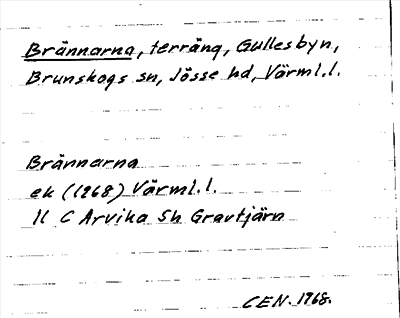 Brännarna, terräng, Gullesbyn,
Brunskogs sn, Jösse hd, Värml.l.
Brännarna
ek (1968) Värml.l.
11 C Arvika Sh Gravtjärn
CEN. 1968.